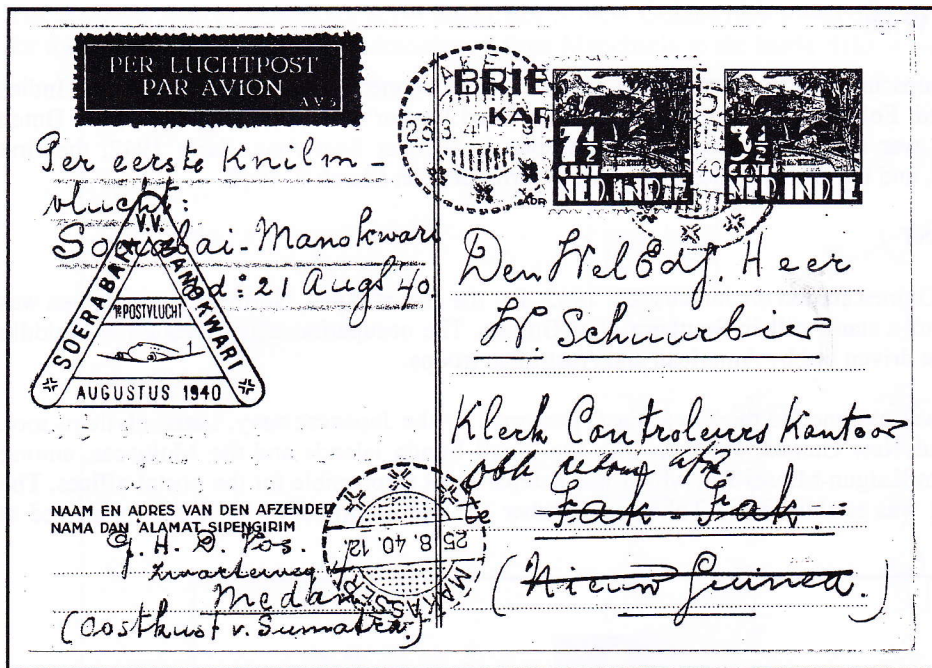 PER LUCHTPOST
PAR AVION
AV5
BRIE
KAR
7½
CENT
NED. INDIE
3½
CENT
NED. INDIE
23.8.40
40
Per eerste Knilm-
vlucht:
Soerabai-Manokwari
od: 21 Augs '40.
V.V.
SOERABAJA MANOKWARI
1e POSTVLUCHT
1
AUGUSTUS 1940
Den WelEdg. Heer
W. Schuurbier
Klerk Controleurs Kantoor
obk retour afz
te Fak-Fak.
(Nieuw Guinea.)
NAAM EN ADRES VAN DEN AFZENDER
NAMA DAN ALAMAT SIPENGIRIM
G. H. D. Vos.
Zwarteweg 4
Medan
(Oostkust v. Sumatra.)
25.8.40.12.
MAKASSER